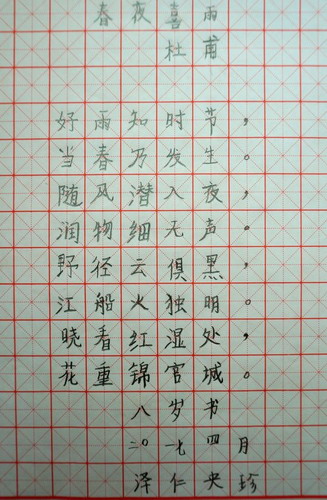 春夜喜雨
杜甫
好雨知时节，
当春乃发生。
随风潜入夜，
润物细无声。
野径云俱黑，
江船火独明。
晓看红湿处，
花重锦官城。
八岁书
二〇一七四月
泽仁央珍